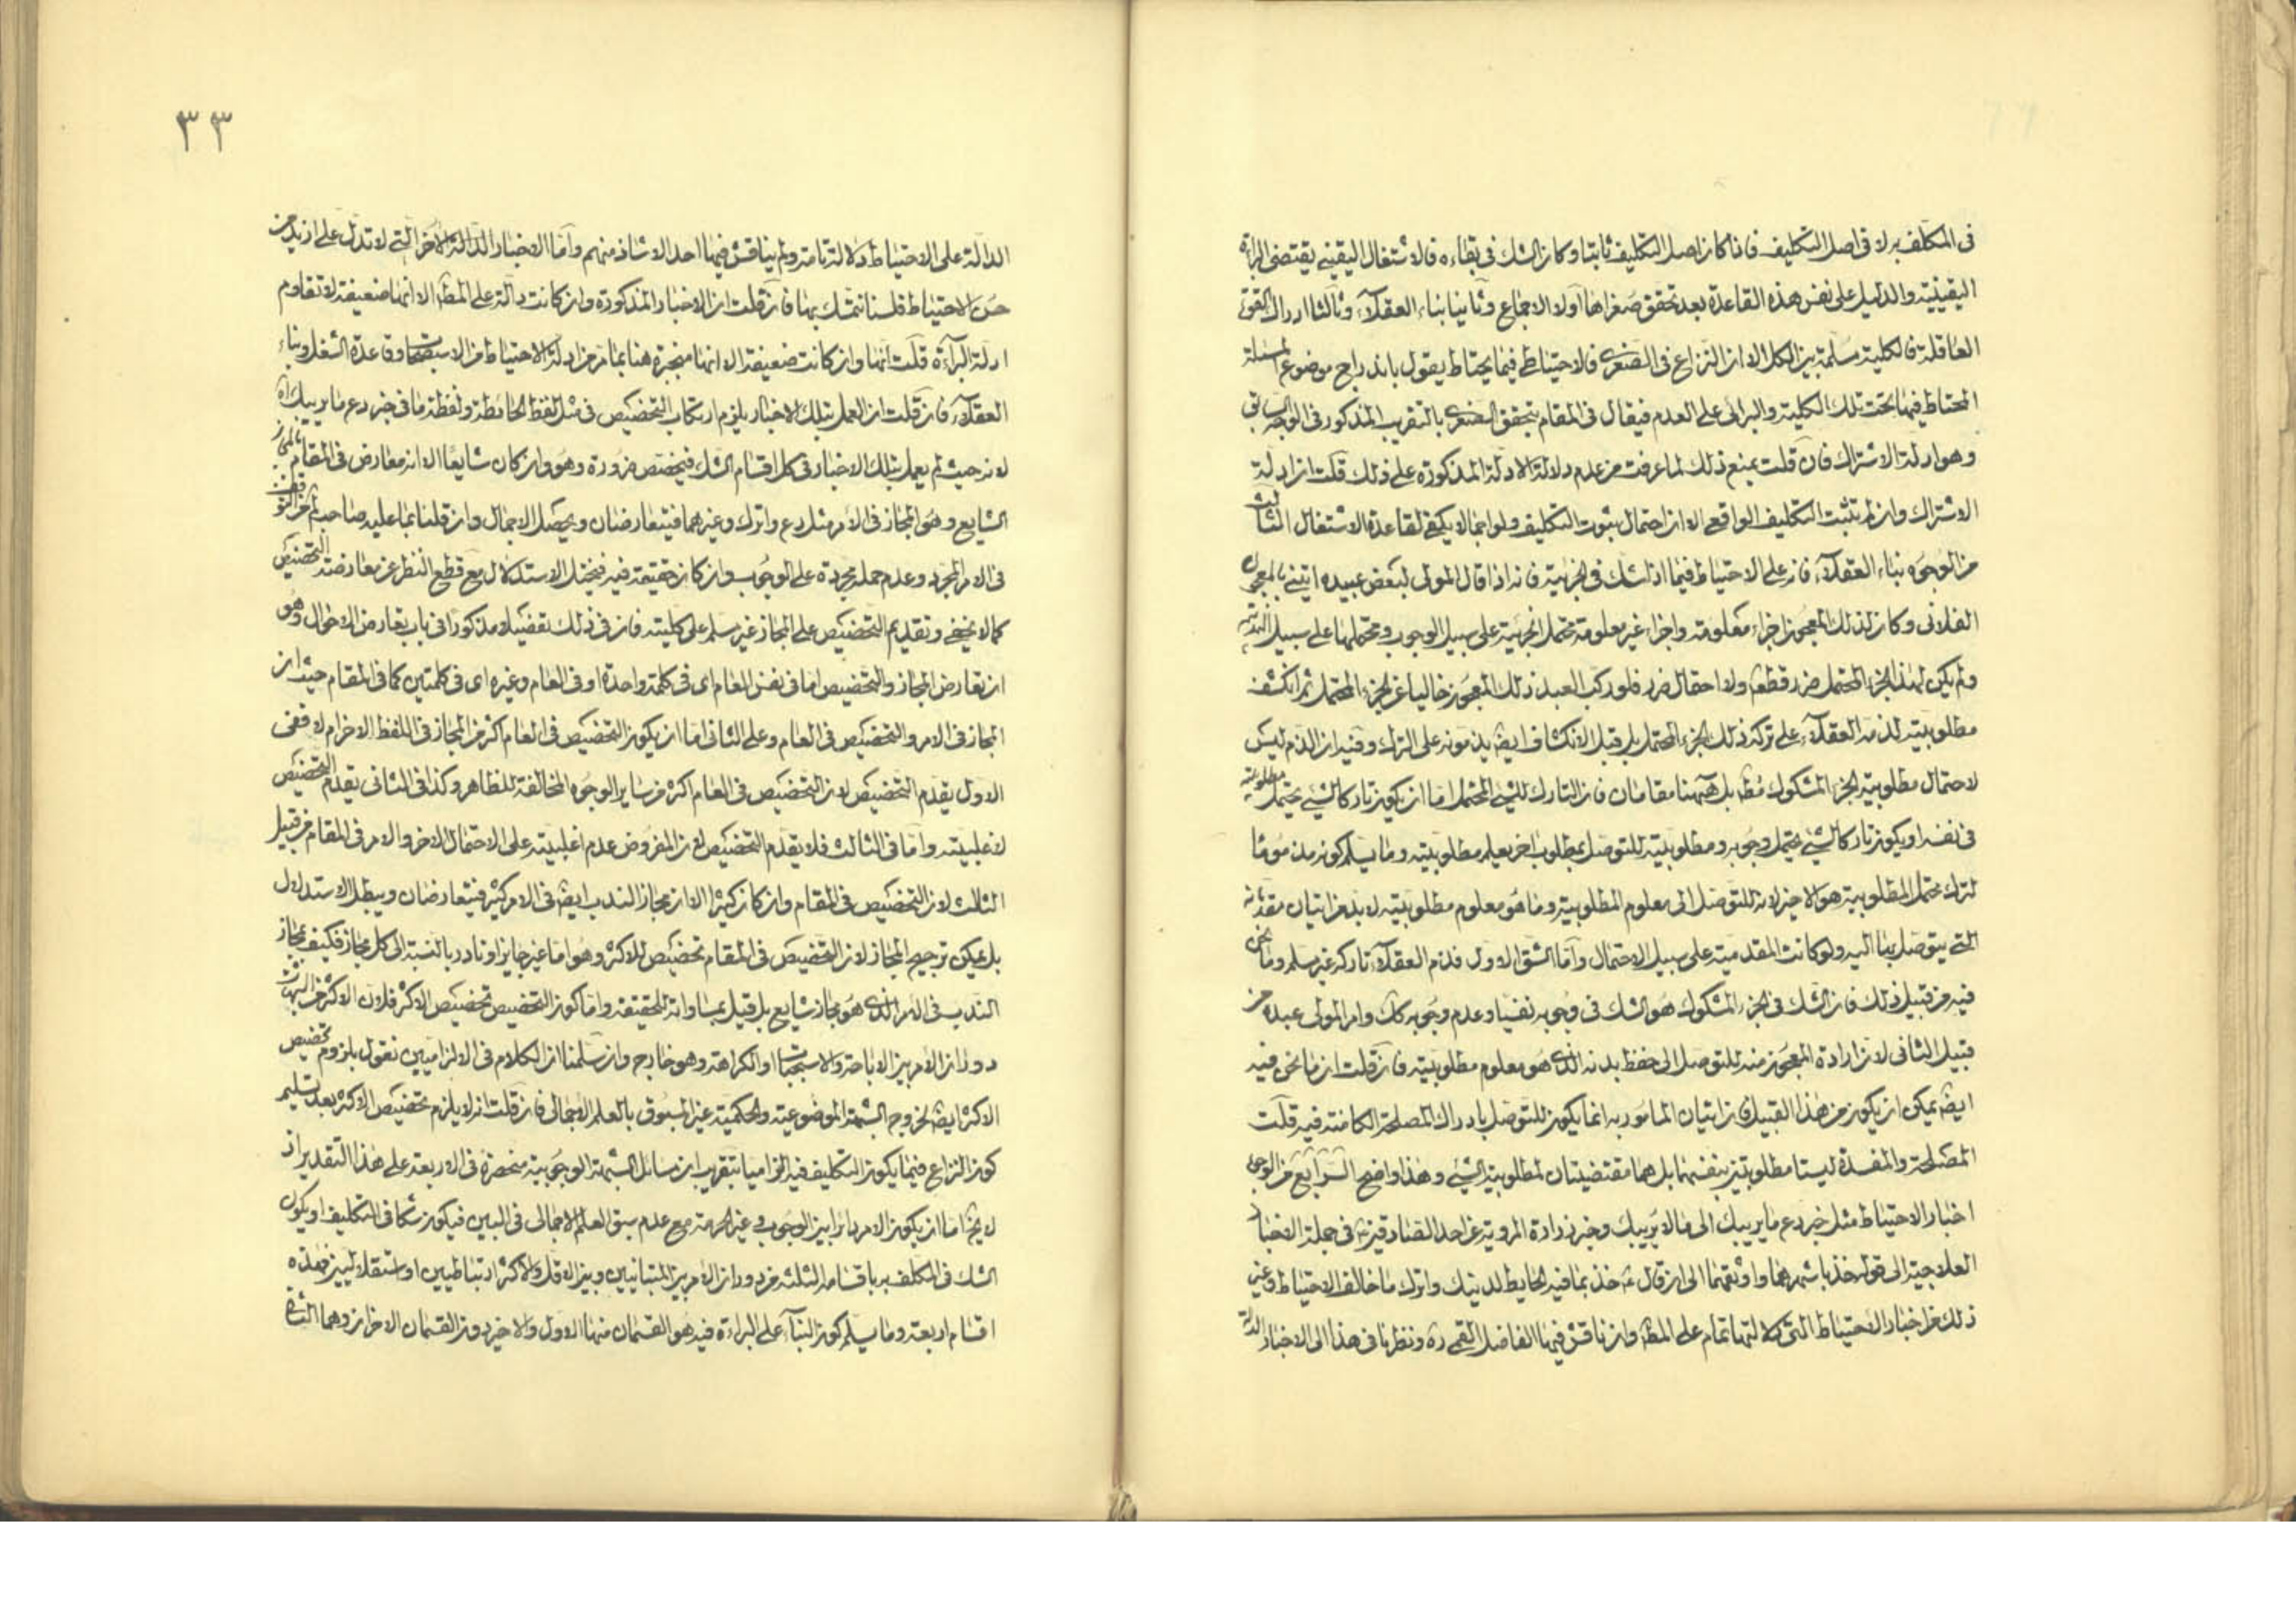 فى المكلف به لا فى اصل التكليف فاذا كان اصل التكليف ثابتا وكان الشك فى بقاءه فالاشتغال اليقينى يقتضى البراءة
اليقينية والدليل على نفس هذه القاعدة بعد تحقق صغراها اولا الاجماع وثانيا بناء العقلاء وثالثا ادراك القوة
العاقلة فالكلية مسلمة بين الكل الا ان النزاع فى الصغرى فالاحتياطى فيما يحتاط يقول باندراج موضوع المسئلة
المحتاط فيها تحت تلك الكلية والبرائى على العدم فيقال فى المقام بتحقق الصغرى بالتقريب المذكور فى الوجه السابق
وهو ادلة الاشتراك فان قلت بمنع ذلك لما عرفت من عدم دلالة الادلة المذكورة على ذلك قلت ان ادلة
الاشتراك وان لم تثبت التكليف الواقعى الا ان احتمال ثبوت التكليف ولو اجمالا يكفى لقاعدة الاشتغال الثالث
من الوجوه بناء العقلاء فانه على الاحتياط فيما اذا شك فى الجزئية فانه اذا قال المولى لبعض عبيده ايتنى بالمعجون
الفلانى وكان لذلك المعجون اجزاء معلومة واجزاء غير معلومة محتمل الجزئية على سبيل الوجوب ومحتملها على سبيل الندب
ولم يكن لهذا الجزء المحتمل ضرر قطعى ولا احتمال ضرر فلو ركب العبد ذلك المعجون خاليا عن الجزء المحتمل ثم انكشف
مطلوبيته لذمه العقلاء على تركه ذلك الجزء المحتمل بل قبل الانكشاف ايضا يذمونه على الترك وفيه ان الذم ليس
لاحتمال مطلوبية الجزء المشكوك مط بل هيهنا مقامان فان التارك للشئ المحتمل اما ان يكون تاركا لشئ يحتمل مطلوبيته
فى نفسه او يكون تاركا لشئ يحتمل وجوبه ومطلوبيته للتوصل بمطلوب اخر يعلم مطلوبيته وما يسلم كونه مذموما
لترك محتمل المطلوبية هو الاخير لانه للتوصل الى معلوم المطلوبية وما هو معلوم مطلوبيته لا بد من اتيان مقدماته
التى يتوصل بها اليه ولو كانت المقدمية على سبيل الاحتمال واما الشق الاول فذم العقلاء تاركه غير مسلم وما نحن
فيه من قبيل ذلك فان الشك فى الجزء المشكوك هو الشك فى وجوبه نفسيا وعدم وجوبه كك وامر المولى عبده من
قبيل الثانى لان ارادة المعجون منه للتوصل الى حفظ بدنه الذى هو معلوم مطلوبيته فان قلت ان ما نحن فيه
ايضا يمكن ان يكون من هذا القبيل فان اتيان المامور به انما يكون للتوصل بادراك المصلحة الكامنة فيه قلت
المصلحة والمفسدة ليستا مطلوبتين بنفسهما بل هما مقتضيتان لمطلوبية الشئ وهذا واضح الرابع من الوجوه
اخبار الاحتياط مثل خبر دع ما يريبك الى ما لا يريبك وخبر زرارة المروية عن احد الصادقين ع فى جملة الاخبار
العلاجية الى قوله خذ باشهرهما واوثقهما الى ان قال ع خذ بما فيه الحايطة لدينك واترك ما خالف الاحتياط وغير
ذلك من اخبار الاحتياط التى دلالتها تمام على المط وان ناقش فيها الفاضل القمى ره ونظرنا فى هذا الى الاخبار الدالة
٣٣
الدالة على الاحتياط دلالة تامة ولم يناقش فيها احد الا شاذ منهم واما الاخبار الدالة الاخر التى لا تدل على ازيد من
حسن الاحتياط فلسنا نتمسك بها فان قلت ان الاخبار المذكورة وان كانت دالة على المط الا انها ضعيفة لا تقاوم
ادلة البراءة قلت انها وان كانت ضعيفة الا انها منجبرة هنا بما مر من ادلة الاحتياط من الاستصحاب وقاعدة الشغل وبناء
العقلاء فان قلت ان العمل بتلك الاخبار يلزم ارتكاب التخصيص فى مثل لفظ الحائطة ولفظة ما فى خبر دع ما يريبك اه
لانه حيث لم يعمل بتلك الاخبار فى كل اقسام الشك فيخصص ضرورة وهو وان كان شايعا الا انه معارض فى المقام بالمجاز
الشايع وهو المجاز فى الامر مثل دع واترك وغيرهما فيتعارضان ويحصل الاجمال وان قلنا بما عليه صاحب لم من التوقف
فى الامر المجرد وعدم حمله مجردة على الوجوب وان كان حقيقة فيه فيختل الاستدلال مع قطع النظر عن معارضته التخصيص
كما لا يخفى وتقديم التخصيص على المجاز غير مسلم على كليته فان فى ذلك تفصيلا مذكورا فى باب تعارض الاحوال وهو
ان تعارض المجاز والتخصيص اما فى نفس العام اى فى كلمة واحدة او فى العام وغيره اى فى كلمتين كما فى المقام حيث ان
المجاز فى الامر والتخصيص فى العام وعلى الثانى اما ان يكون التخصيص فى العام اكثر من المجاز فى اللفظ الاخر ام لا ففى
الاول يقدم التخصيص لان التخصيص فى العام اكثر من ساير الوجوه المخالفة للظاهر وكذا فى الثانى يقدم التخصيص
لاغلبيته واما فى الثالث فلا يقدم التخصيص لان المفروض عدم اغلبيته على الاحتمال الاخر والامر فى المقام من قبيل
الثالث لان التخصيص فى المقام وان كان كثيرا الا ان مجاز الندب ايضا فى الامر كثير فيتعارضان ويبطل الاستدلال
بل يمكن ترجيح المجاز لان التخصيص فى المقام تخصيص للاكثر وهو اما غير جايز او نادر بالنسبة الى كل مجاز فكيف بمجاز
الندب فى الامر الذى هو مجاز شايع بل قيل بمساواته للحقيقة واما كون التخصيص تخصيص الاكثر فلان الاكثر من الشبهات
دوران الامر بين الاباحة والاستحباب او الكراهة وهو خارج وان سلمنا ان الكلام فى الالزاميين نقول بلزوم تخصيص
الاكثر ايضا لخروج الشبهة الموضوعية والحكمية غير المسبوق بالعلم الاجمالى فان قلت انه لا يلزم تخصيص الاكثر بعد تسليم
كون النزاع فيما يكون التكليف فيه الزاميا بتقريب ان مسائل الشبهة الوجوبية منحصرة فى الاربعة على هذا التقدير اذ
لا يخ اما ان يكون الامر دائرا بين الوجوب وغير الحرمة مع عدم سبق العلم الاجمالى فى البين فيكون شكا فى التكليف او يكون
الشك فى المكلف به باقسامه الثلثة من دوران الامر بين المتباينين وبين الاقل والاكثر ارتباطيين او استقلاليين فهذه
اقسام اربعة وما يسلم كون البناء على البراءة فيه هو القسمان منها الاول والاخير دون القسمان الاخران وهما الثانى